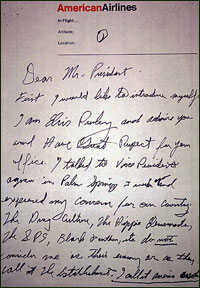 AmericanAirlines
In Flight...
Altitude;
Location;
Dear Mr. President
First I would like to introduce myself
I am Elvis Presley and admire you
and Have Great Respect for your
office. I talked to Vice President
agnew in Palm Springs 3 weeks and
expressed my concern for our country.
The Drug Culture, The Hippie Elements,
the SDS, Black Panthers, etc do not
consider me as their enemy or as they
call it The Establishment. I call it america